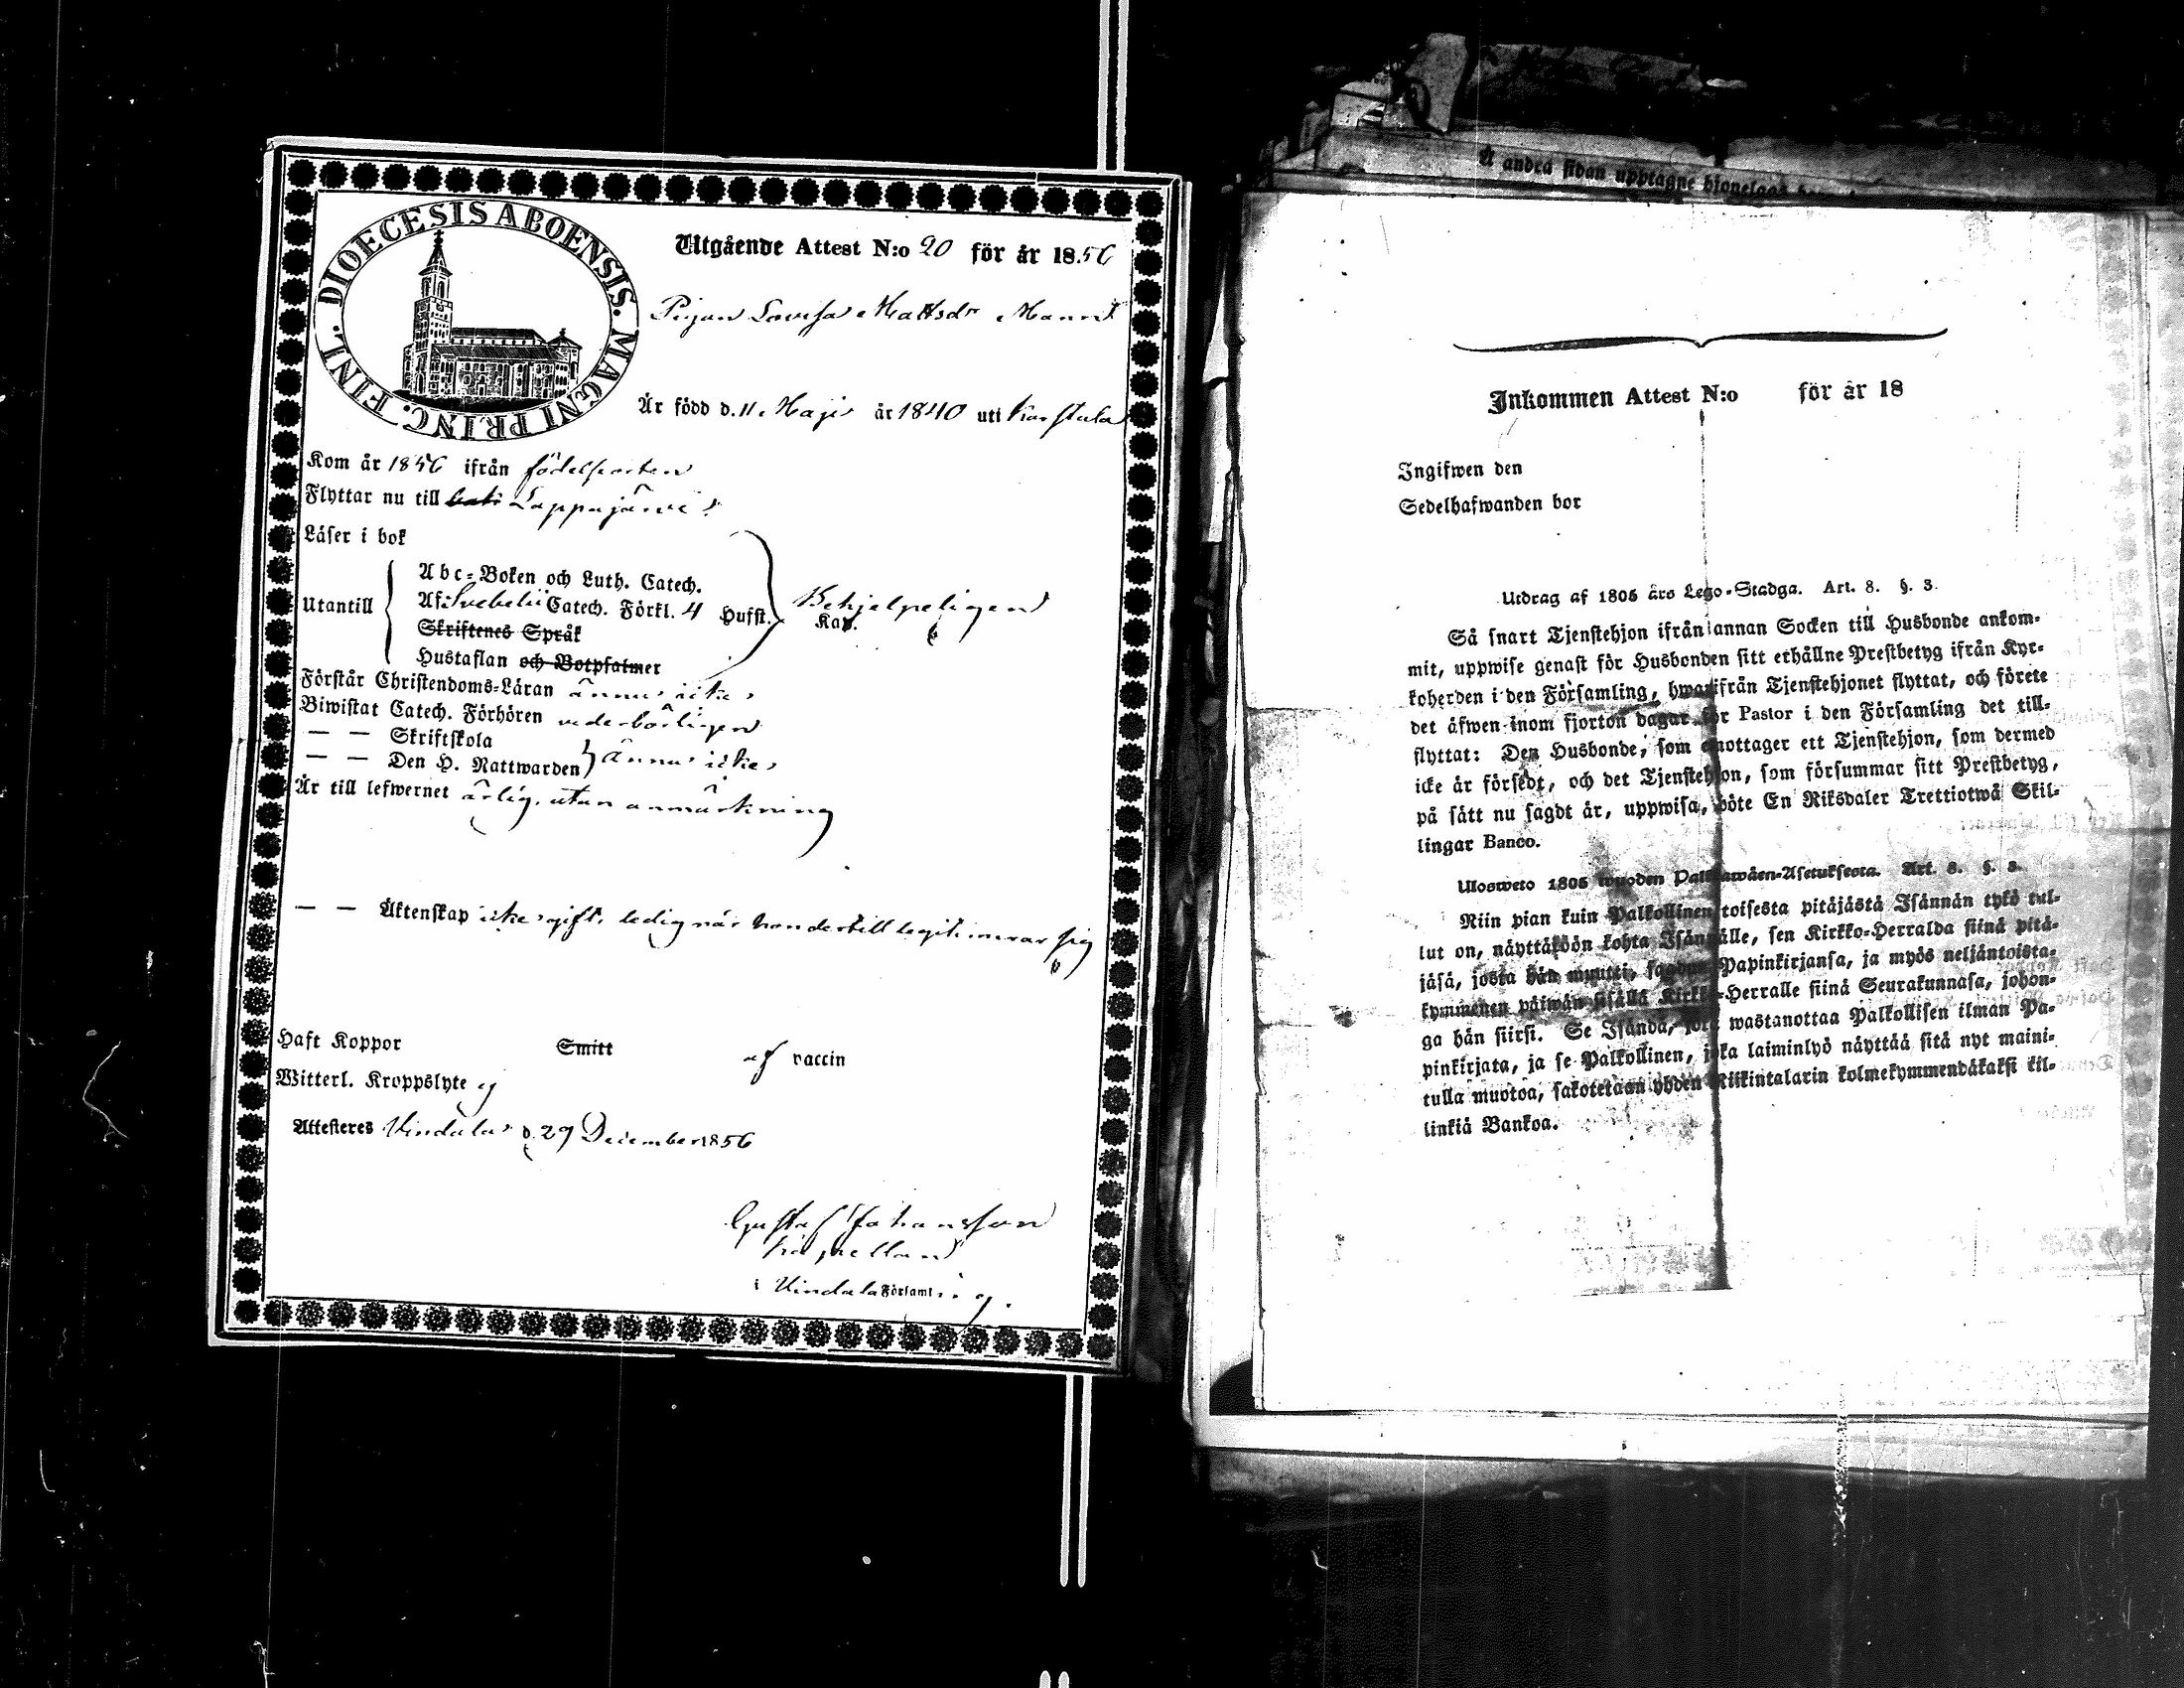 Å andra sidan upptagne hjonelags
DIOECESIS ABOENSIS. MAGNI PRINC. FINL.
Utgående Attest N:o 20 för år 1856
Pigan Lovisa Mattsdr
Är född d. 11 Maji år 1840 uti Karstula
Kom år 1856 ifrån födelseorten
Flyttar nu till Lappajärvi
Läser i bok
Utantill
Abc-Boken och Luth. Catech.
Af Svebelii Catech. Förkl. 4 Hufst. Kap.
Behjelpeligen
Skriftenes Språk
Hustaflan och Botpsalmer
Förstår Christendoms-Läran ännu icke
Biwistat Catech. Förhören vederbörligen
— — Skriftskola
— — Den H. Nattwarden } ännu icke
Är till lefwernet ärlig, utan anmärkning
— — Äktenskap icke gift, ledig när hon dertill legitimerar sig
Haft Koppor Smitt af vaccin
Witterl. Kroppslyte ej
Attesteres Vindala d. 29 December 1856
Gustaf Johansson
Kapellan
i Vindala Församling.
Inkommen Attest N:o för år 18
Ingifwen den
Sedelhafwanden bor
Utdrag af 1805 års Lego-Stadga. Art. 8. §. 3.
Så snart Tjenstehjon ifrån annan Socken till Husbonde ankom-
mit, uppwise genast för Husbonden sitt erhållne Prestbetyg ifrån Kyr-
koherden i den Församling, hwarifrån Tjenstehjonet flyttat, och förete
det äfwen inom fjorton dagar för Pastor i den Församling det till-
flyttat: Den Husbonde, som emottager ett Tjenstehjon, som dermed
icke är försedt, och det Tjenstehjon, som försummar sitt Prestbetyg,
på sätt nu sagdt är, uppwisa, böte En Riksdaler Trettiotwå Skil-
lingar Banco.
Ulosweto 1805 wuoden Palkkawäen-Asetuksesta. Art. 8. §. 3.
Niin pian kuin Palkollinen toisesta pitäjästä Isännän tykö tul-
lut on, näyttäköön kohta Isännälle, sen Kirkko-Herralda siinä pitä-
jäsä, josta hän muutti, saadun Papinkirjansa, ja myös neljäntoista-
kymmenen päiwän sisällä Kirkko-Herralle siinä Seurakunnasa, johon-
ga hän siirsi. Se Isändä, joka wastanottaa Palkollisen ilman Pa-
pinkirjata, ja se Palkollinen, joka laiminlyö näyttää sitä nyt maini-
tulla muotoa, sakotetaan yhden Riikintalarin kolmekymmendäkaksi kil-
linkiä Bankoa.